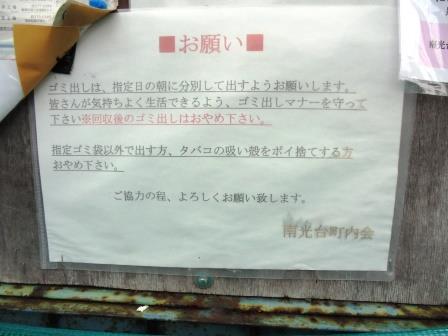 ■お願い■
ゴミ出しは、指定日の朝に分別して出すようお願いします。
皆さんが気持ちよく生活できるよう、ゴミ出しマナーを守って
下さい※回収後のゴミ出しはおやめ下さい。
指定ゴミ袋以外で出す方、タバコの吸い殻をポイ捨てする方
おやめ下さい。
ご協力の程、よろしくお願い致します。
南光台町内会
南光台